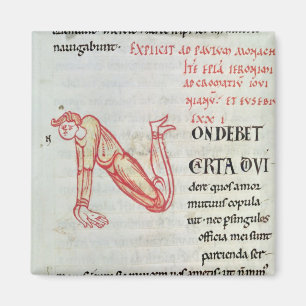 nauigabunt.
EXPLICIT AD PAVLVM MONACH
ITE EPLA IERONIMI
AD CROMATIVM IOVI
NIANV. ET EVSEBIV
LXX I
N
ON DEBET
CARTA DIVI
dere quos amor
mutuus copula
uit nec p singulos
officia mei sunt
partienda ser